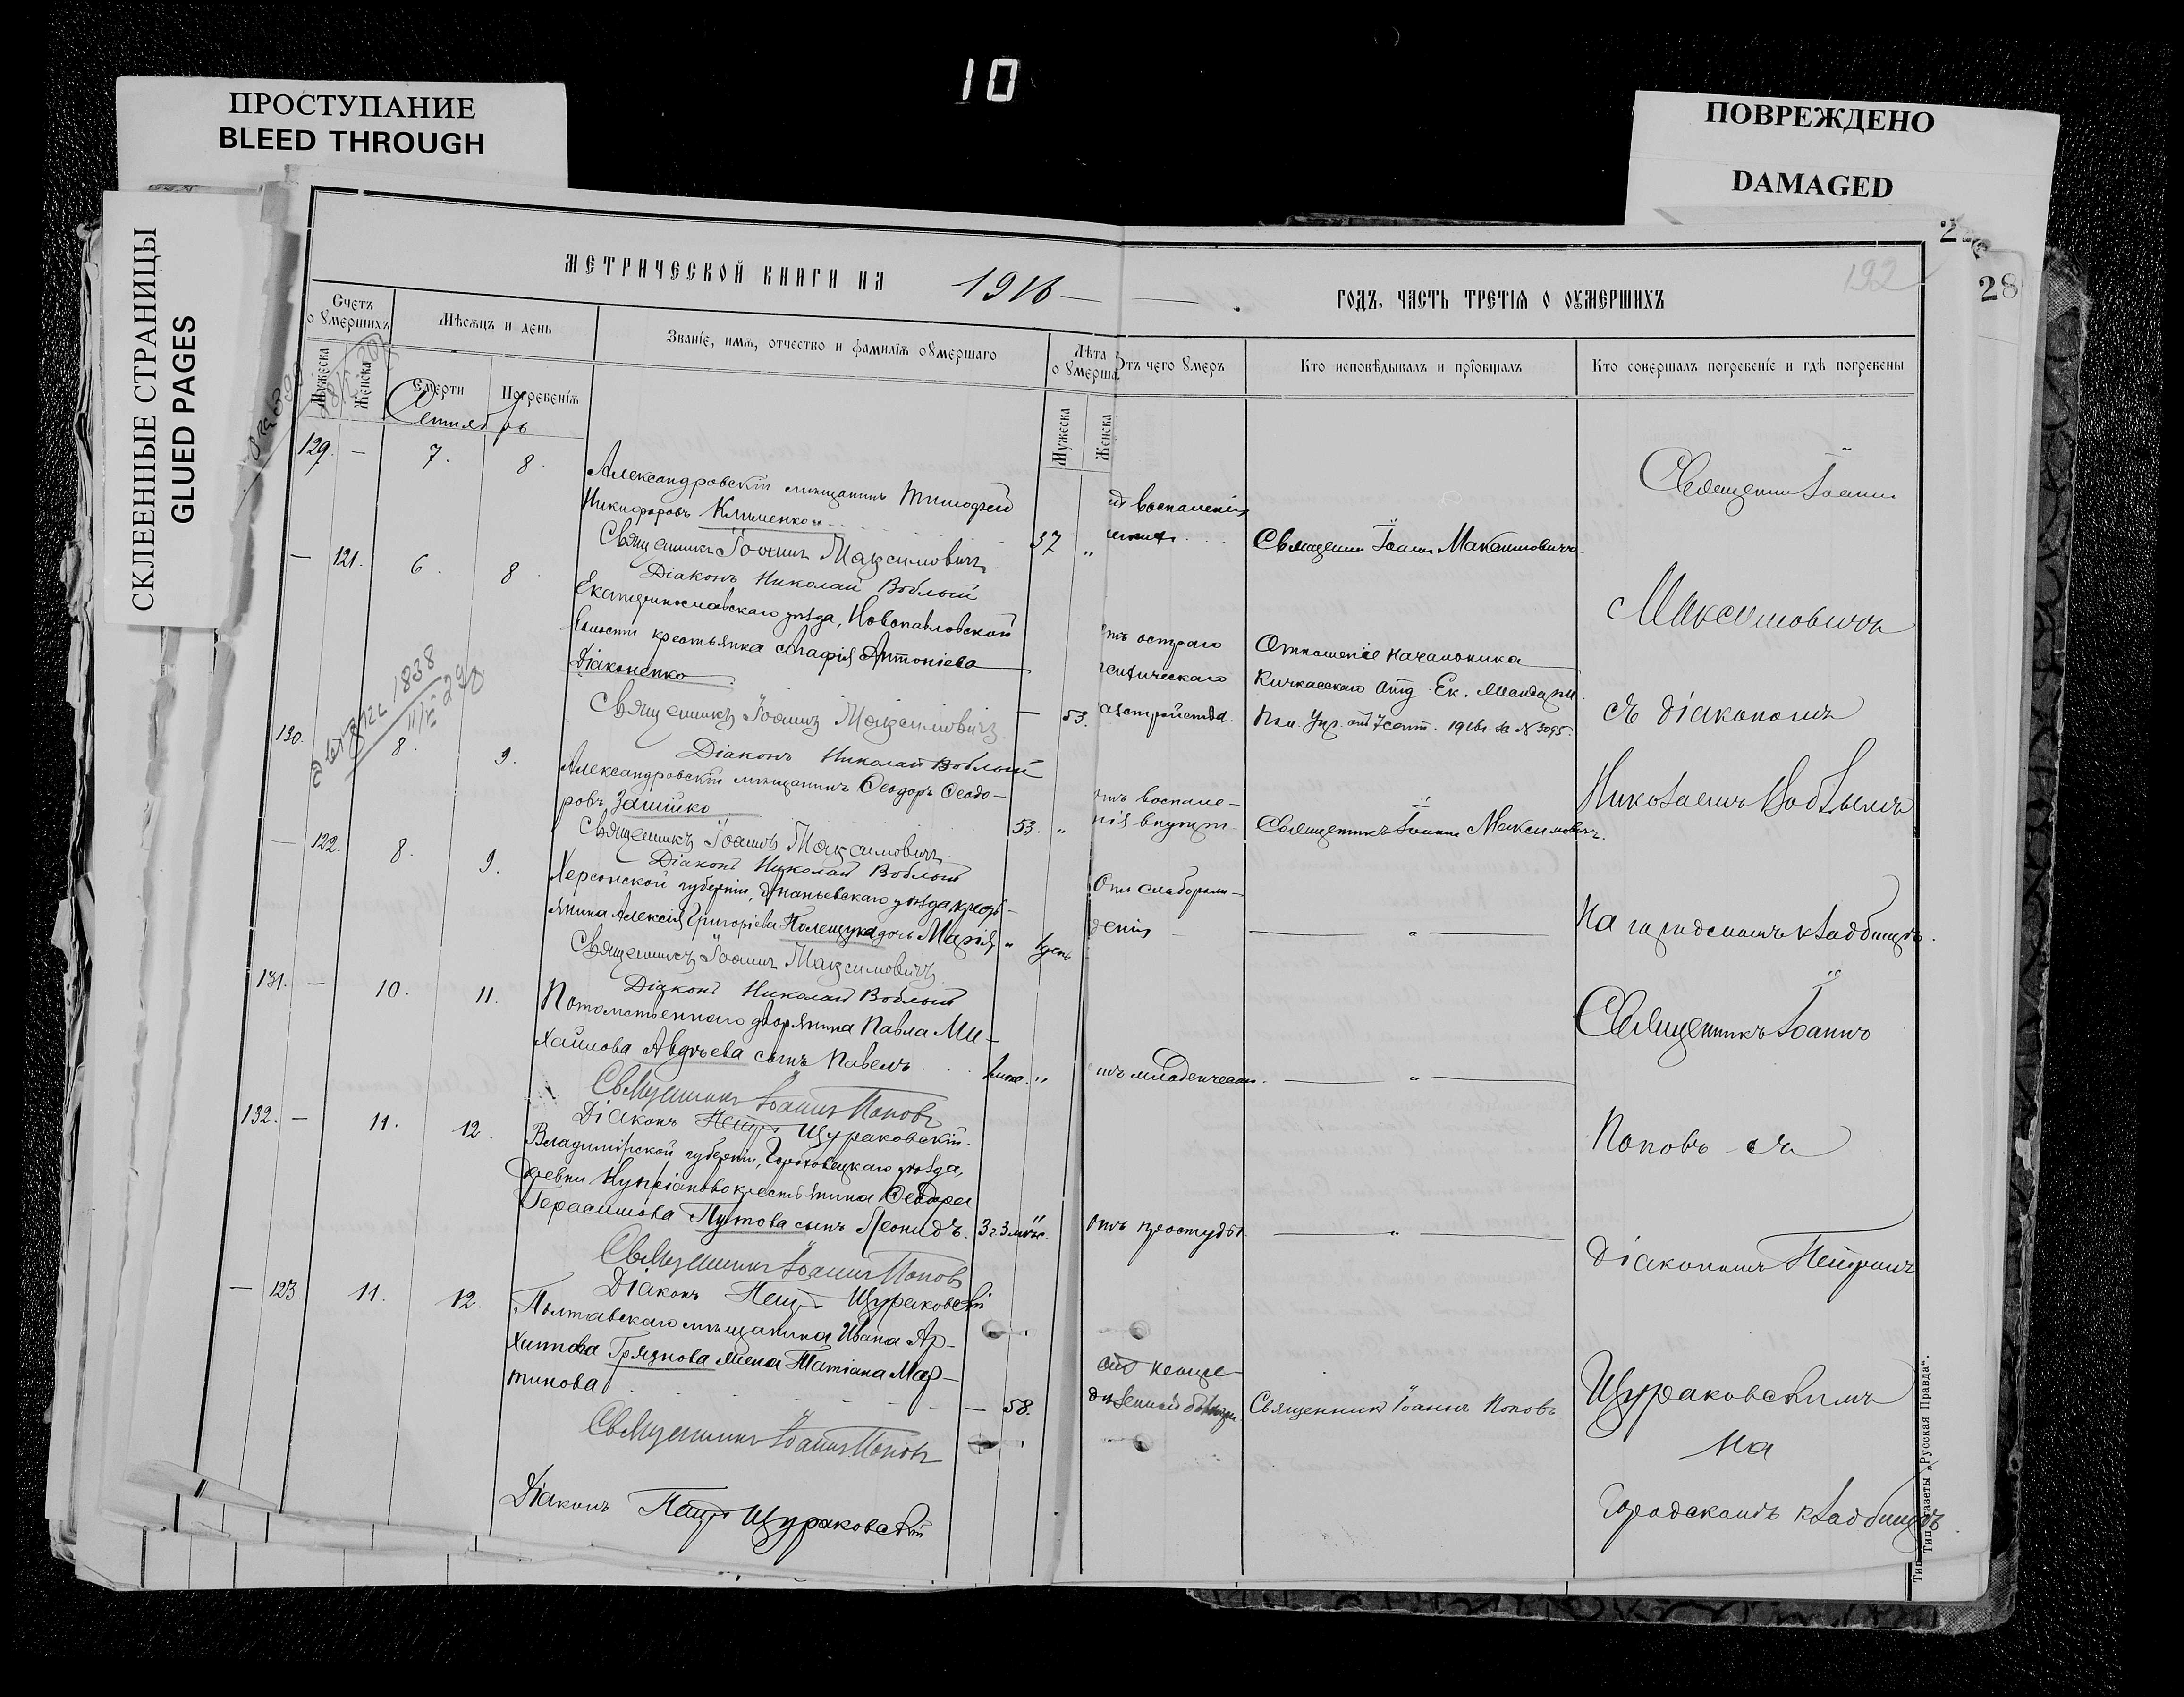 10
ПРОСТУПАНИЕ
BLEED THROUGH
ПОВРЕЖДЕНО
DAMAGED
СКЛЕЕННЫЕ СТРАНИЦЫ
GLUED PAGES
28
192
МЕТРИЧЕСКОЙ КНИГИ НА 1916
ГОДЪ, ЧАСТЬ ТРЕТІЯ О ОУМЕРШИХЪ
Счетъ о Умершихъ
Мѣсяцъ и день
Званіе, имя, отчество и фамилія оумершаго
Лѣта оумерша
Отъ чего умеръ
Кто исповѣдывалъ и пріобщалъ
Кто совершалъ погребеніе и гдѣ погребены
Мужеска
Женска
Смерти
Погребенія
Мужеска
Женска
Сентябрь
129. — 7. 8.
Александровскій мѣщанинъ Тимофей
Никифоровъ Клименко
37 "
отъ воспаленія
Священникъ Іоаннъ Максимовичъ
Священникъ Іоаннъ Максимовичъ
Діаконъ Николай Воблый
— 121. 6. 8.
Екатеринославскаго уѣзда, Новопавловской
волости крестьянка Агафія Антоніева
Діаконенко
— 53.
отъ остраго
психическаго
разстройства.
Отношеніе начальника
Кичкасскаго Отд. Ек. Жанд.
Пол. Упр. отъ 7 сент. 1916 г. за № 3095.
Священникъ Іоаннъ Максимовичъ
Діаконъ Николай Воблый
130. 8. 9.
Александровскій мѣщанинъ Ѳеодоръ Ѳеодо-
ровъ Зашийко
53. "
отъ воспале-
нія внутрен.
Священникъ Іоаннъ Максимовичъ.
Священникъ Іоаннъ Максимовичъ
Діаконъ Николай Воблый
— 122. 8. 9.
Херсонской губерніи, Ананьевскаго уѣзда кресть-
янина Алексія Григоріева Полещука дочь Марія
" 1 день
Отъ слаборож-
денія
— " —
Священникъ Іоаннъ Максимовичъ
Діаконъ Николай Воблый
131. — 10. 11.
Потомственнаго дворянина Павла Ми-
хайлова Авдѣева сынъ Павелъ
отъ младенческой
— " —
Священникъ Іоаннъ Поповъ
Діаконъ Петръ Щураковскій.
132. — 11. 12.
Владимірской губерніи, Гороховецкаго уѣзда,
деревни Купріяново крестьянина Ѳеодора
Герасимова Путова сынъ Леонидъ.
3 г. 3 мѣс. "
отъ простуды
— " —
Священникъ Іоаннъ Поповъ
Діаконъ Петръ Щураковскій
— 123. 11. 12.
Полтавскаго мѣщанина Ивана Ар-
хипова Грязнова жена Татіана Мар-
тинова
— 58.
Священникъ Іоаннъ Поповъ
Священникъ Іоаннъ Поповъ
Діаконъ Петръ Щураковскій
Священникъ Іоаннъ
Максимовичъ
съ діакономъ
Николаемъ Воблымъ
на городскомъ кладбищѣ.
Священникъ Іоаннъ
Поповъ съ
діакономъ Петромъ
Щураковскимъ
на
городскомъ кладбищѣ
Тип. газеты „Русская Правда“.